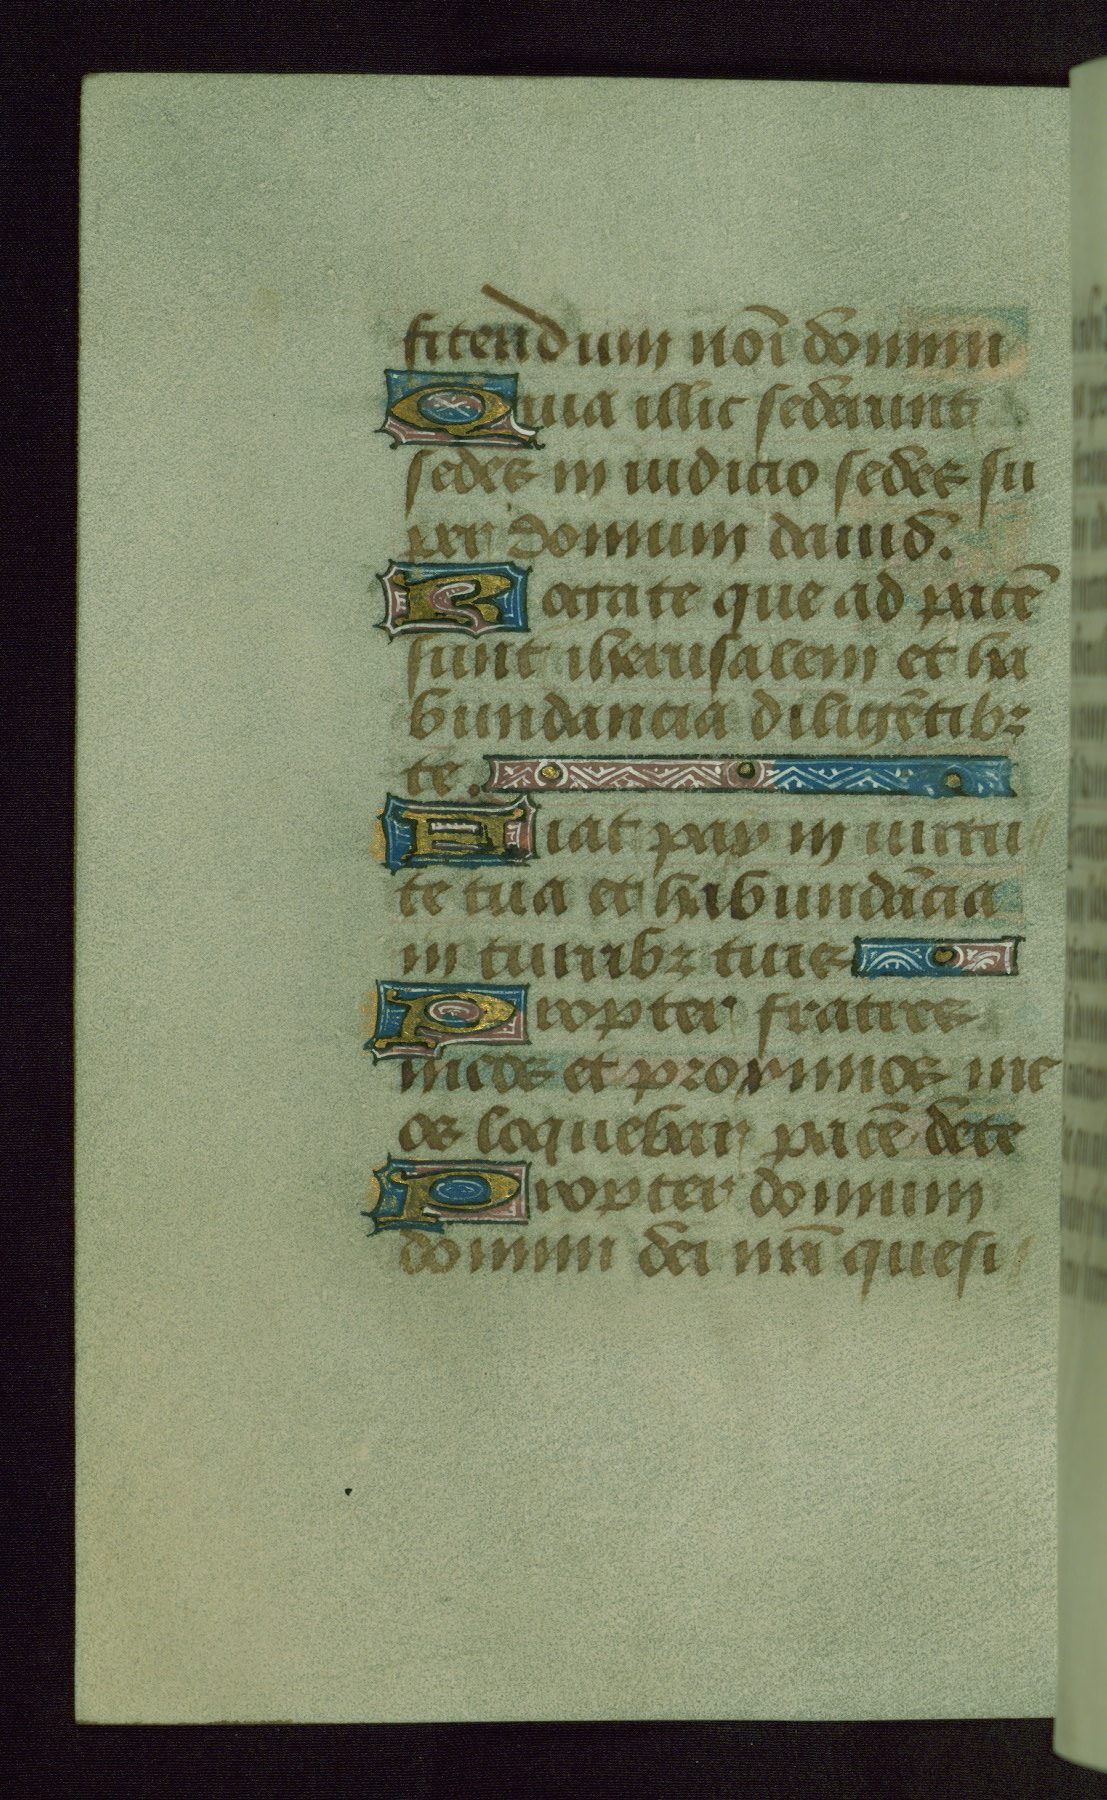 fitendum noı̄ domini
Quia illic sederunt
sedes in iudicio sedes su
per domum dauid.
Rogate que ad pacē
sunt iherusalem et ha
bundancia diligētibꝫ
te.
Fiat pax in uirtu
te tua et habundācia
in turribꝫ tuis
Propter fratres
meos et proximos me
os loquebar pacē de te
Propter domum
domini dei nr̄i quesi